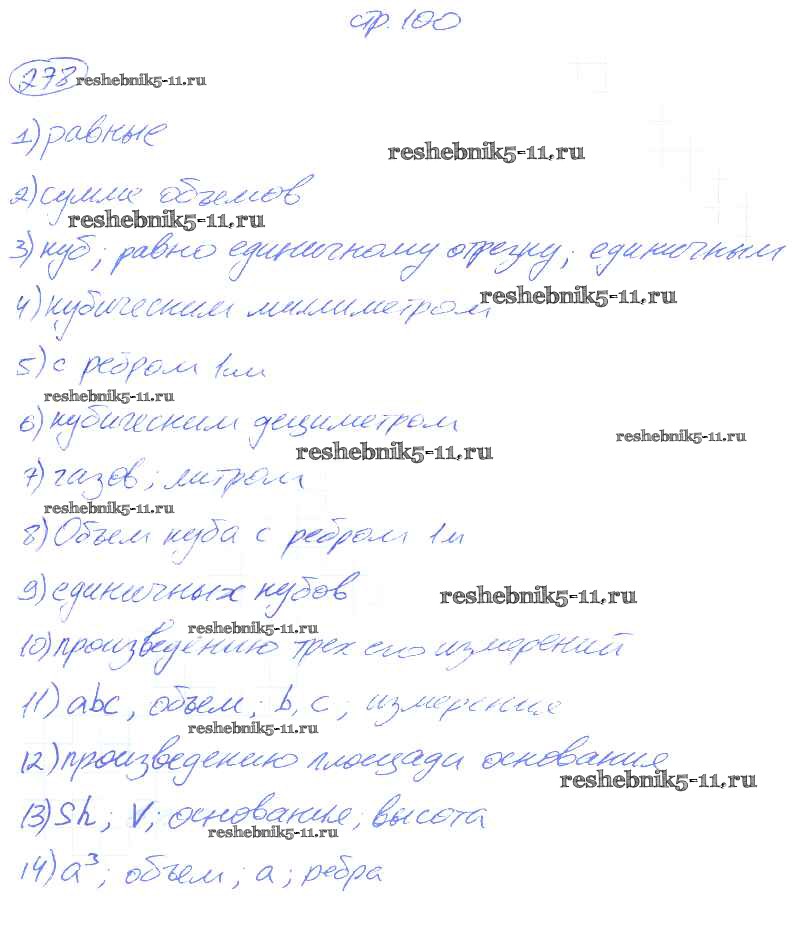 стр. 100
278 reshebnik5-11.ru
1) равные
reshebnik5-11.ru
2) сумме объемов
reshebnik5-11.ru
3) куб; равно единичному отрезку; единичным
4) кубическим миллиметром
reshebnik5-11.ru
5) с ребром 1см
reshebnik5-11.ru
6) кубическим дециметром
reshebnik5-11.ru
reshebnik5-11.ru
7) газов; литром
reshebnik5-11.ru
8) Объем куба с ребром 1м
9) единичных кубов
reshebnik5-11.ru
reshebnik5-11.ru
10) произведению трех его измерений
11) abc, объем; b, c; измерение
reshebnik5-11.ru
12) произведению площади основание
reshebnik5-11.ru
13) Sh; V; основание; высота
reshebnik5-11.ru
14) a³; объем; a; ребра